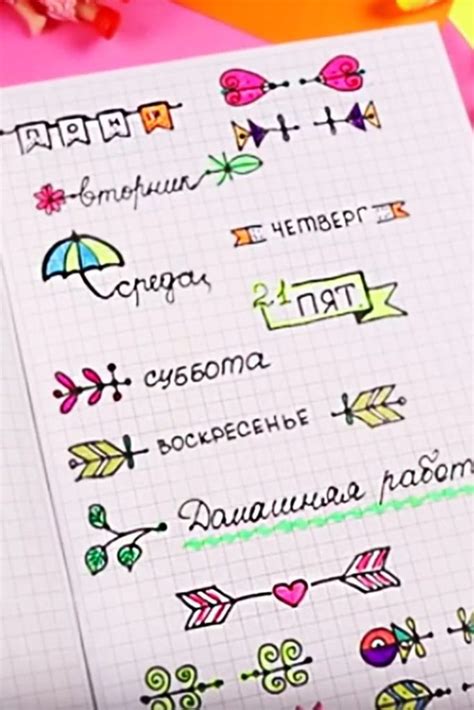 ПОН
вторник
ЧЕТВЕРГ
среда
21 ПЯТ.
СУББОТА
ВОСКРЕСЕНЬЕ
Домашняя работ